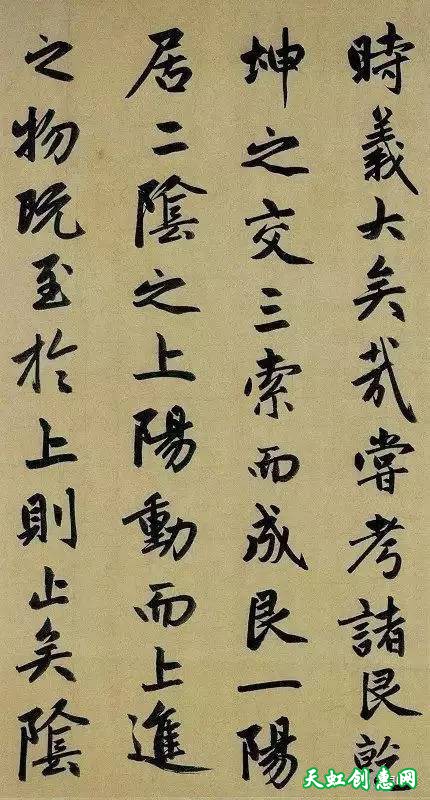 時義大矣哉嘗考諸艮乾
坤之交三索而成艮一陽
居二陰之上陽動而上進
之物既至於上則止矣陰
天虹创意网